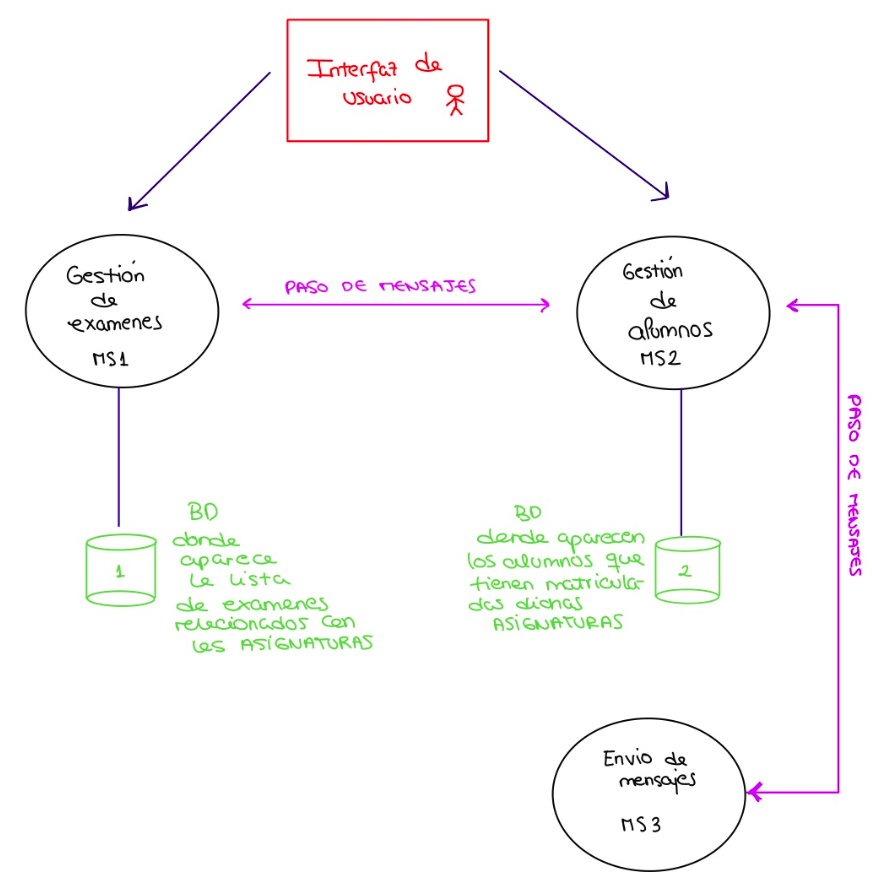 Interfaz de
usuario
Gestión
de
examenes
MS1
PASO DE MENSAJES
Gestión
de
alumnos
MS2
PASO DE MENSAJES
BD
donde
aparece
la lista
de examenes
relacionados con
las ASIGNATURAS
1
BD
donde aparecen
los alumnos que
tienen matricula-
das dichas
ASIGNATURAS
2
Envio de
mensajes
MS3